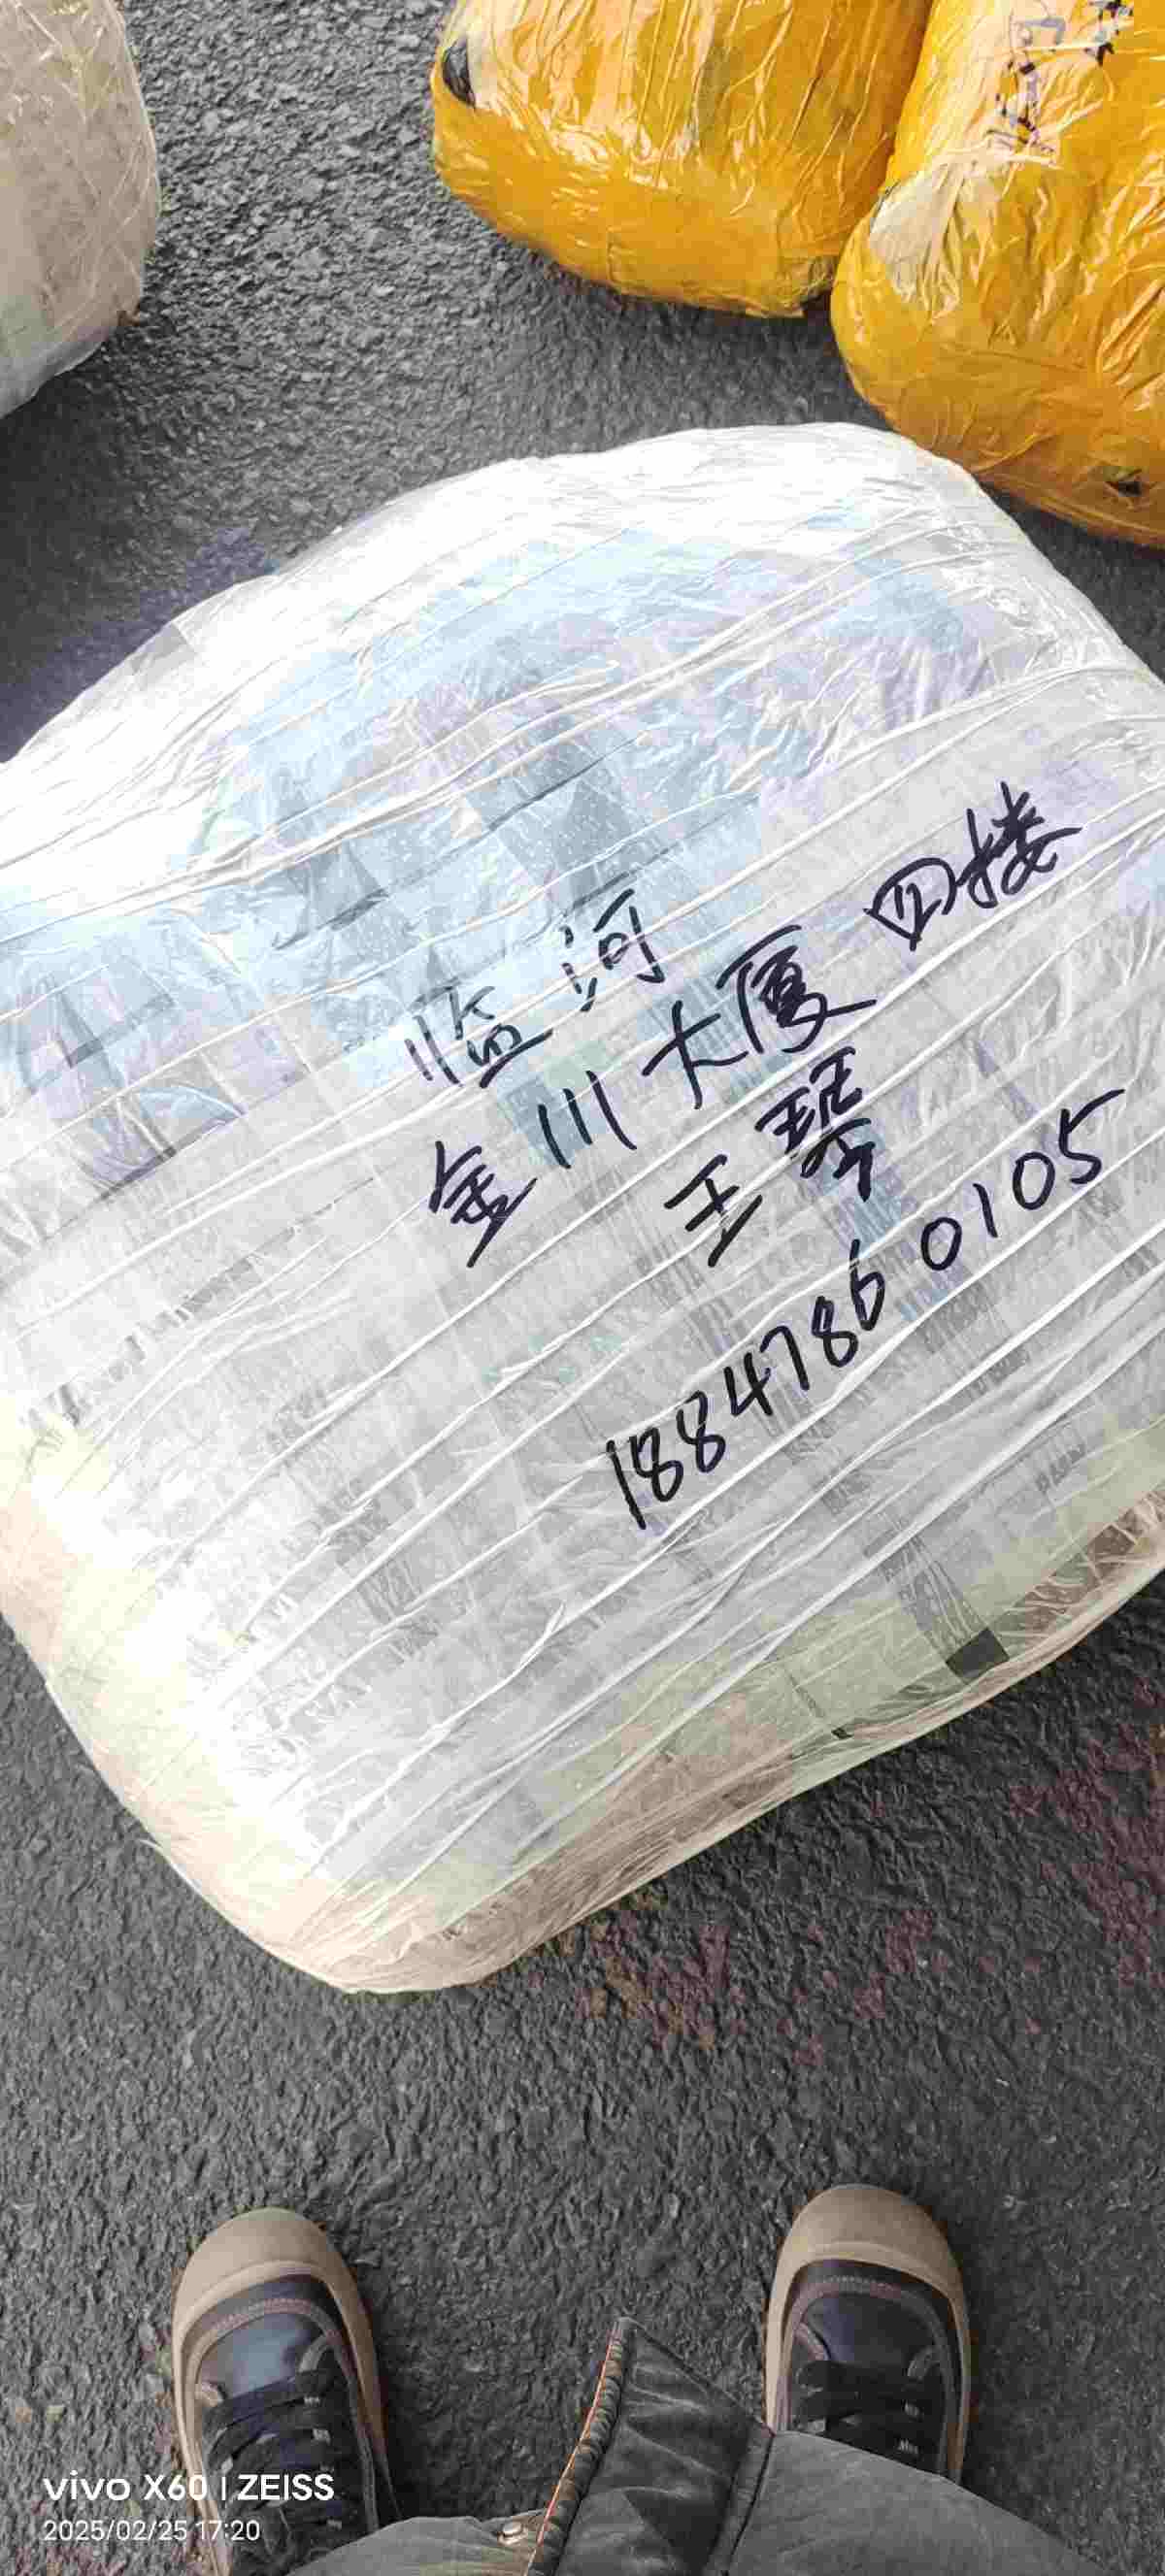 临河
金川大厦 四楼
王琴
18847860105
vivo X60 | ZEISS
2025/02/25 17:20